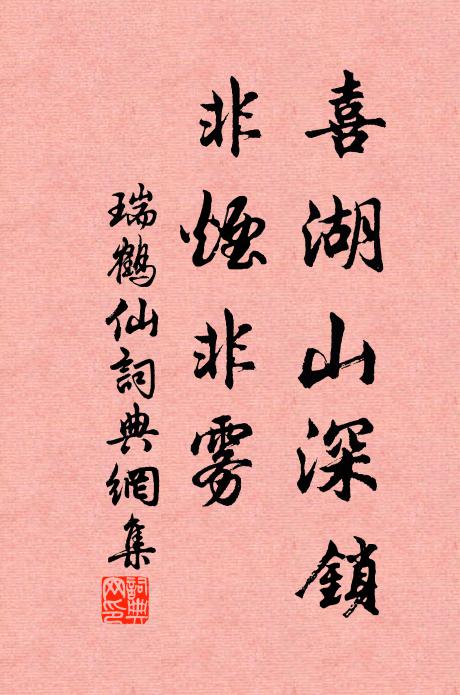 喜湖山深鎖
非煙非雾
瑞鶴仙詞典網集
詞典
网印